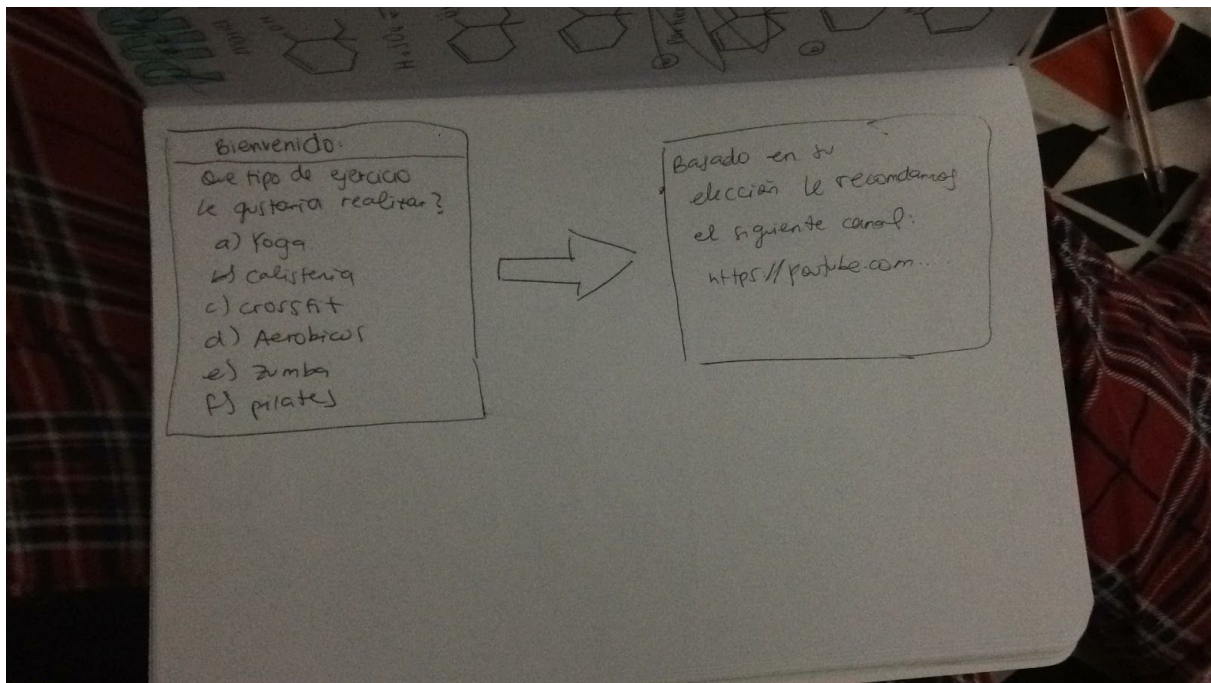 H2SO4
OH
Bienvenido:
Que tipo de ejercicio
le gustaria realizar?
a) Yoga
b) calistenia
c) crossfit
d) Aerobicos
e) zumba
f) pilates
Basado en su
elección le recomdamos
el siguiente canal:
https//youtube.com...